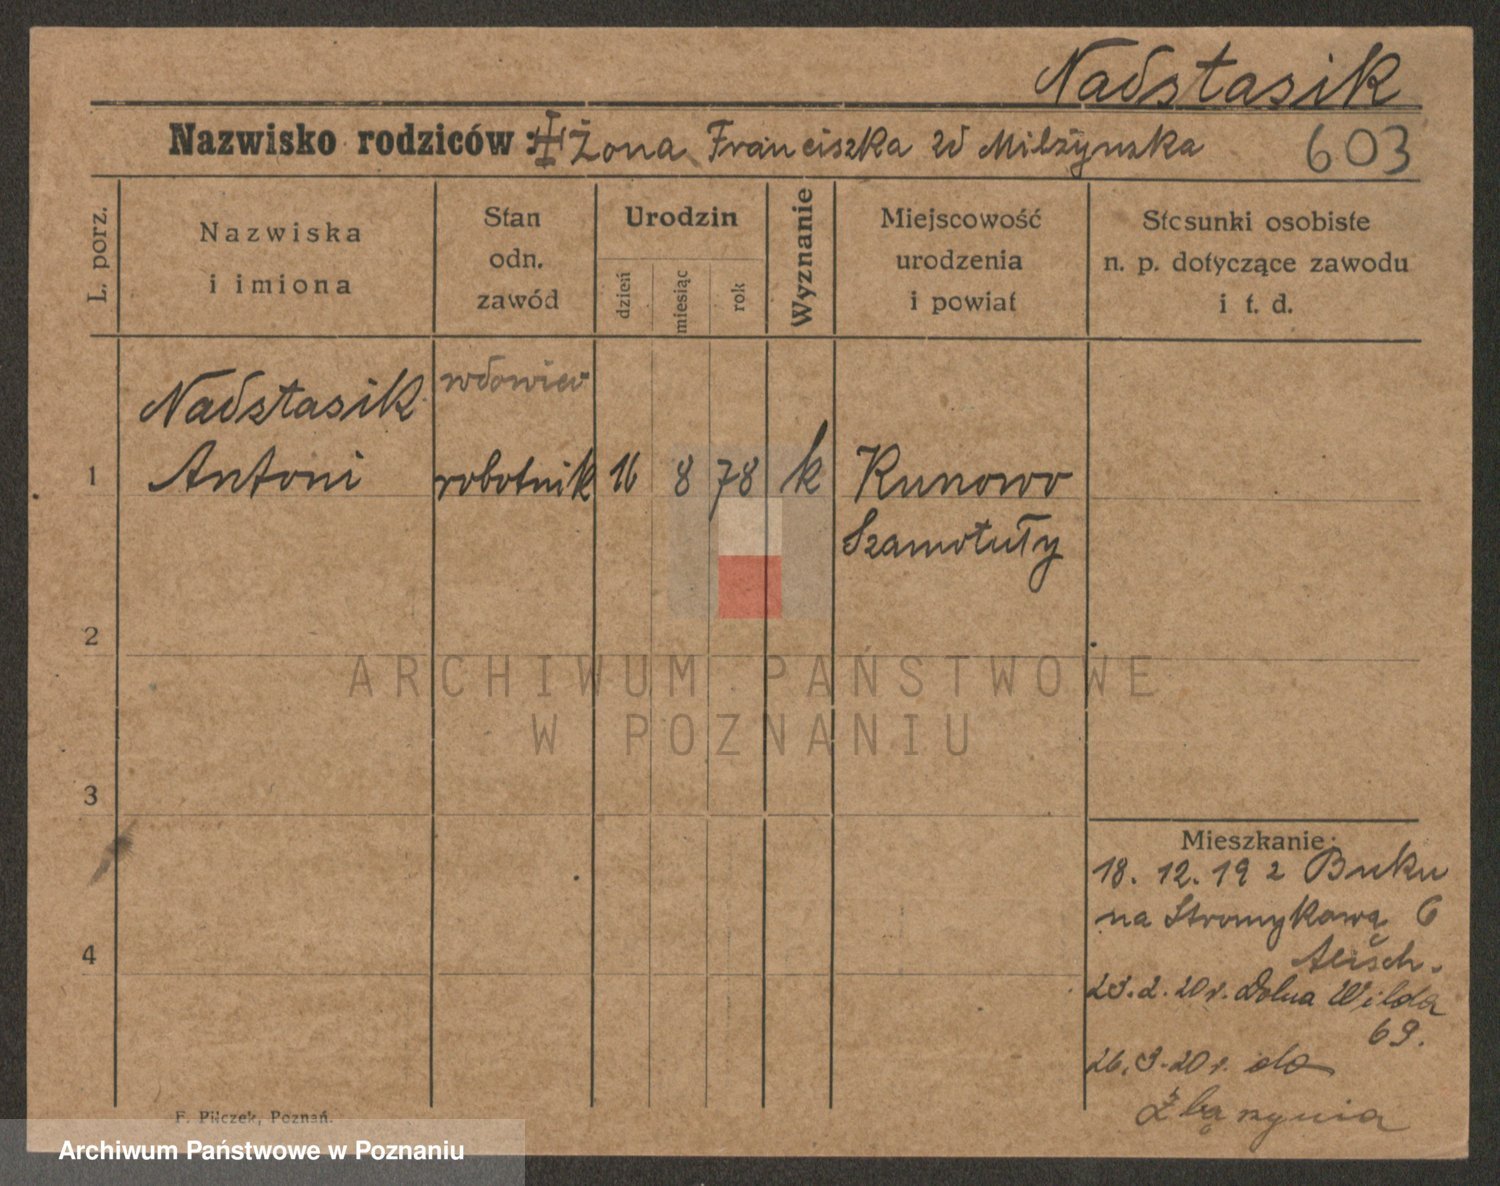 Nadstasik
Nazwisko rodziców: Żona Franciszka zd Milzynska 603
L. porz.
Nazwiska
i imiona
Stan
odn.
zawód
Urodzin
dzień
miesiąc
rok
Wyznanie
Miejscowość
urodzenia
i powiat
Stosunki osobiste
n. p. dotyczące zawodu
i t. d.
Nadstasik wdowiec
1 Antoni robotnik 16 8 78 k Kunowo
Szamotuły
2
ARCHIWUM PAŃSTWOWE
W POZNANIU
3
Mieszkanie:
18. 12. 19 z Buku
na Stromykową 6
4
23. 2. 20 r. Dolna Wilda
69.
26. 3. 20 r. do
Zbąszynia
F. Pilczek, Poznań.
Archiwum Państwowe w Poznaniu